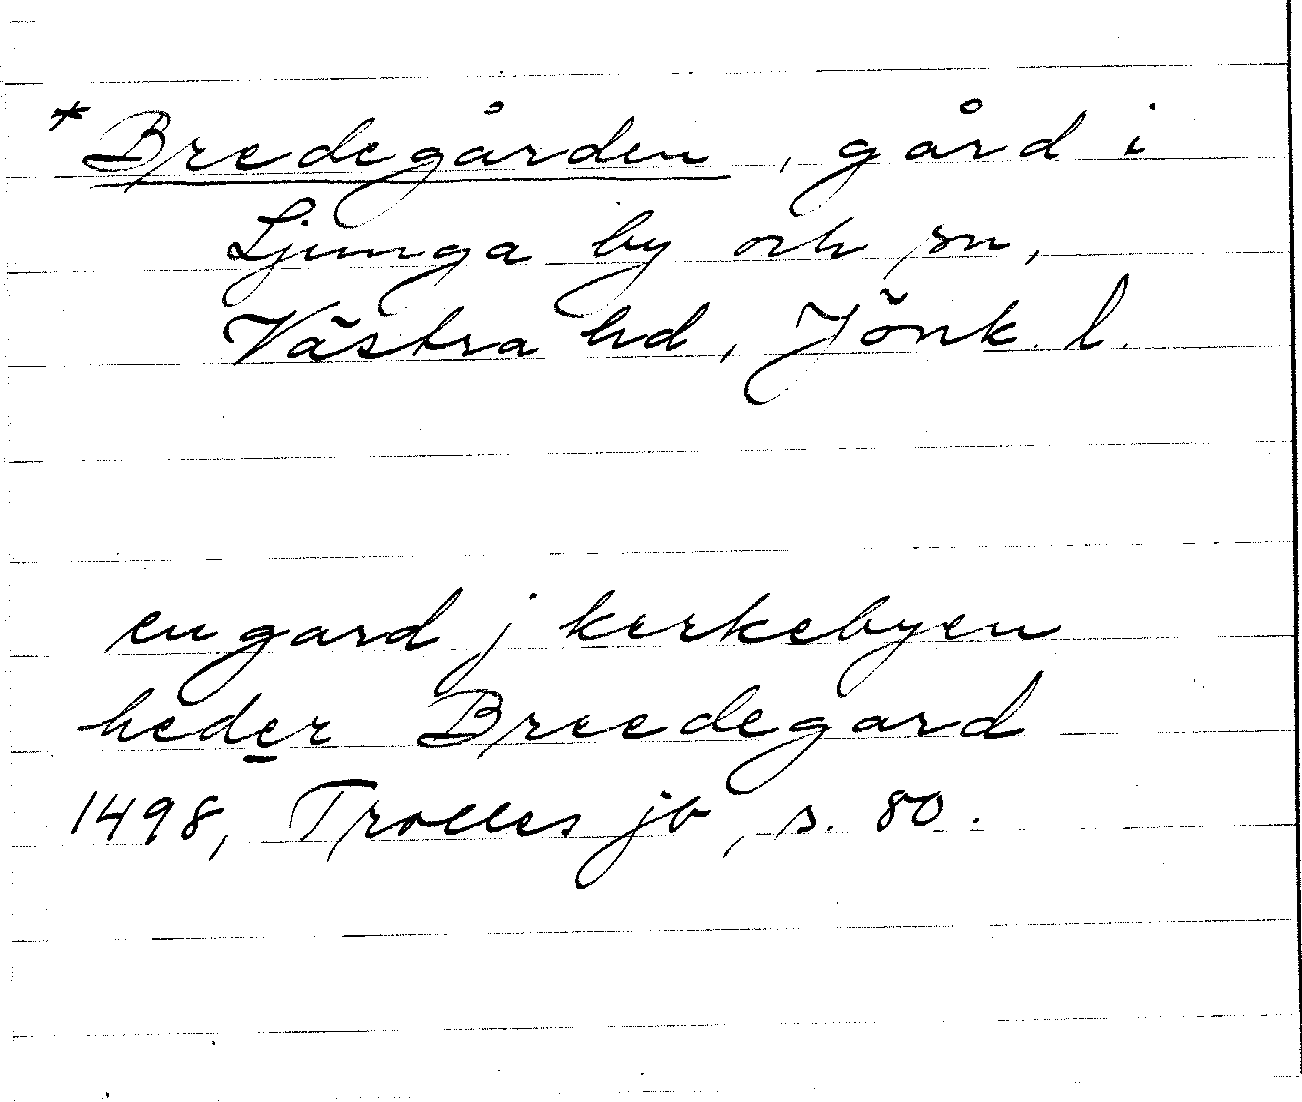 *Bredegården, gård i
Ljunga by och sn,
Västra hd, Jönk. l.
en gard j kerkebyen
heder Breedegard
1498, Trolles jb, s. 80.